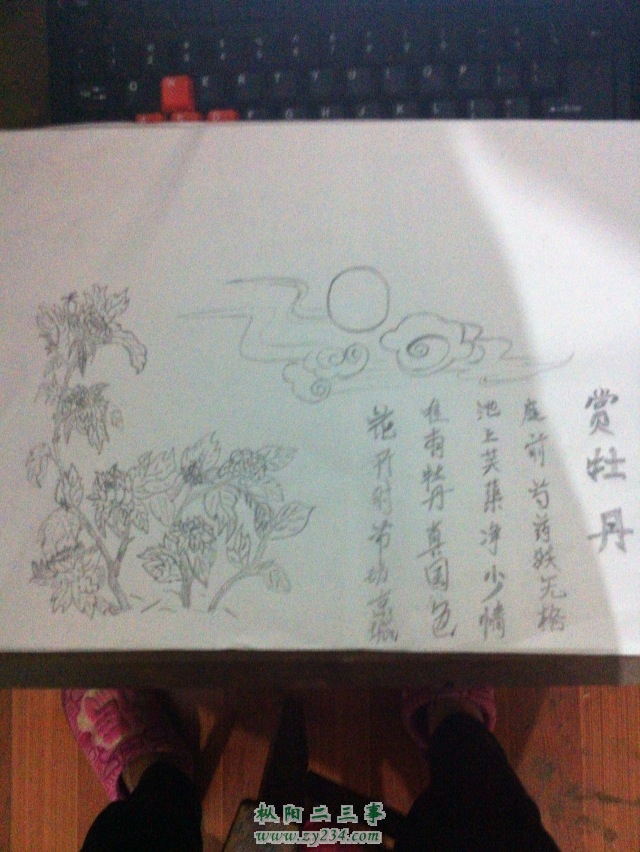 赏牡丹
庭前芍药妖无格
池上芙蕖净少情
唯有牡丹真国色
花开时节动京城
枞阳二三事
www.zy234.com